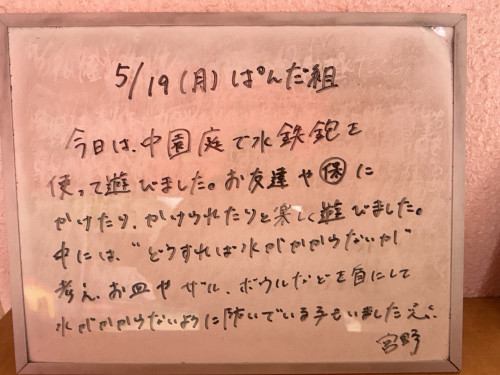 5/19(月)ぱんだ組
今日は、中園庭で水鉄鉋を
使って遊びました。お友達や㋭に
かけたり、かけられたりと楽しく遊びました。
中には、“どうすれば水がかからないか”
考え、お皿やザル、ボウルなどを盾にして
水がかからないように防いでいる子もいました
宮野